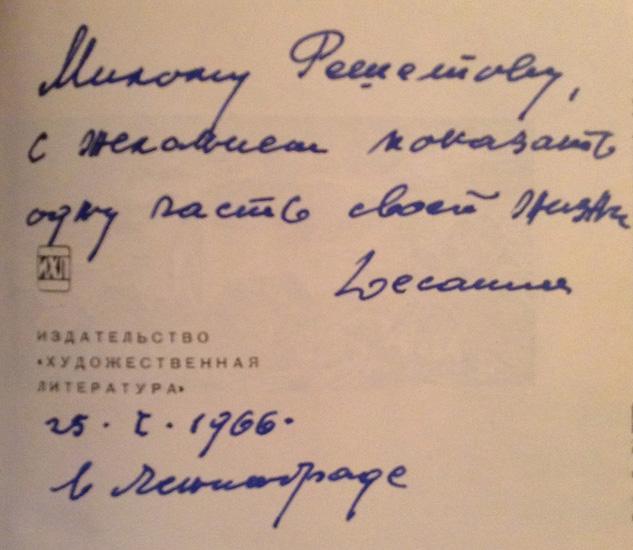 Милому Решетову,
с желанием показать
одну часть своей жизни
ИХЛ
ИЗДАТЕЛЬСТВО
«ХУДОЖЕСТВЕННАЯ
ЛИТЕРАТУРА»
25. I. 1966.
в Ленинграде